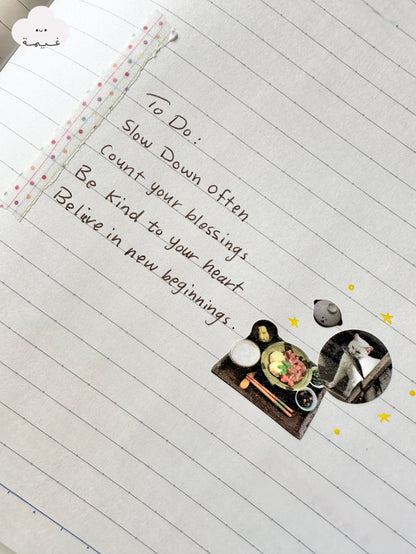 غيمة
To Do:
Slow Down often
Count your blessings
Be Kind to your heart
Believe in new beginnings.